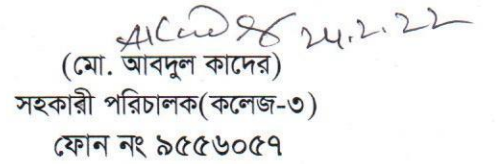 ২৪.২.২২
(মো. আবদুল কাদের)
সহকারী পরিচালক(কলেজ-৩)
ফোন নং ৯৫৫৬০৫৭